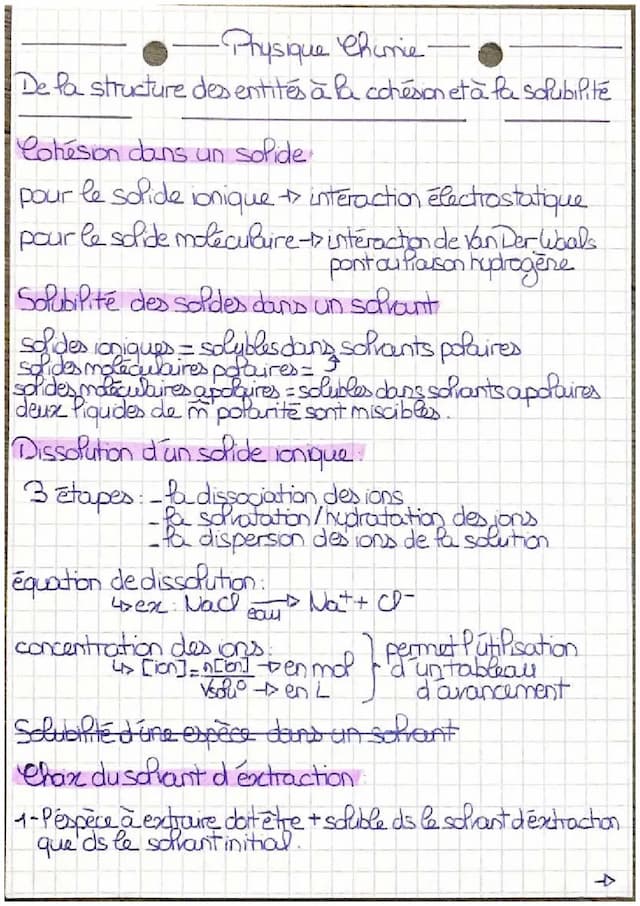 Physique Chimie
De la structure des entités à la cohésion et à la solubilité
Cohésion dans un solide
pour le solide ionique → interaction électrostatique
pour le solide moléculaire → intéraction de Van Der Waals
pont ou liaison hydrogène
Solubilité des solides dans un solvant
solides ioniques = solubles dans solvants polaires
solides moléculaires polaires = ↗
solides moléculaires apolaires = solubles dans solvants apolaires
deux liquides de m̂ polarité sont miscibles.
Dissolution d'un solide ionique:
3 étapes: - la dissociation des ions
- la solvatation/hydratation des ions
- la dispersion des ions de la solution
équation de dissolution:
↳ ex: NaCl →eau Na⁺ + Cl⁻
concentration des ions: } permet l'utilisation
↳ [ion] = n[ion] → en mol d'un tableau
Vsolu° → en L d'avancement
Solubilité d'une espèce dans un solvant
Choix du solvant d'éxtraction
1- l'éspèce à extraire doit être + soluble ds le solvant d'éxtraction
que ds le solvant initial.
→